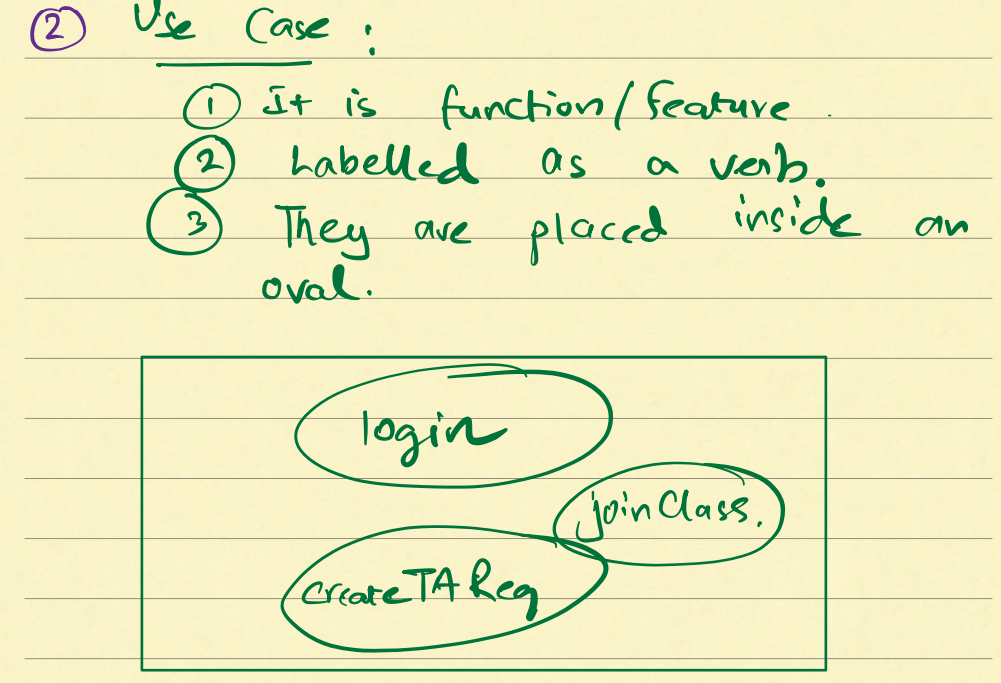 ② Use Case :
① It is function/feature.
② Labelled as a verb.
③ They are placed inside an
oval.
login
joinClass.
createTAReq